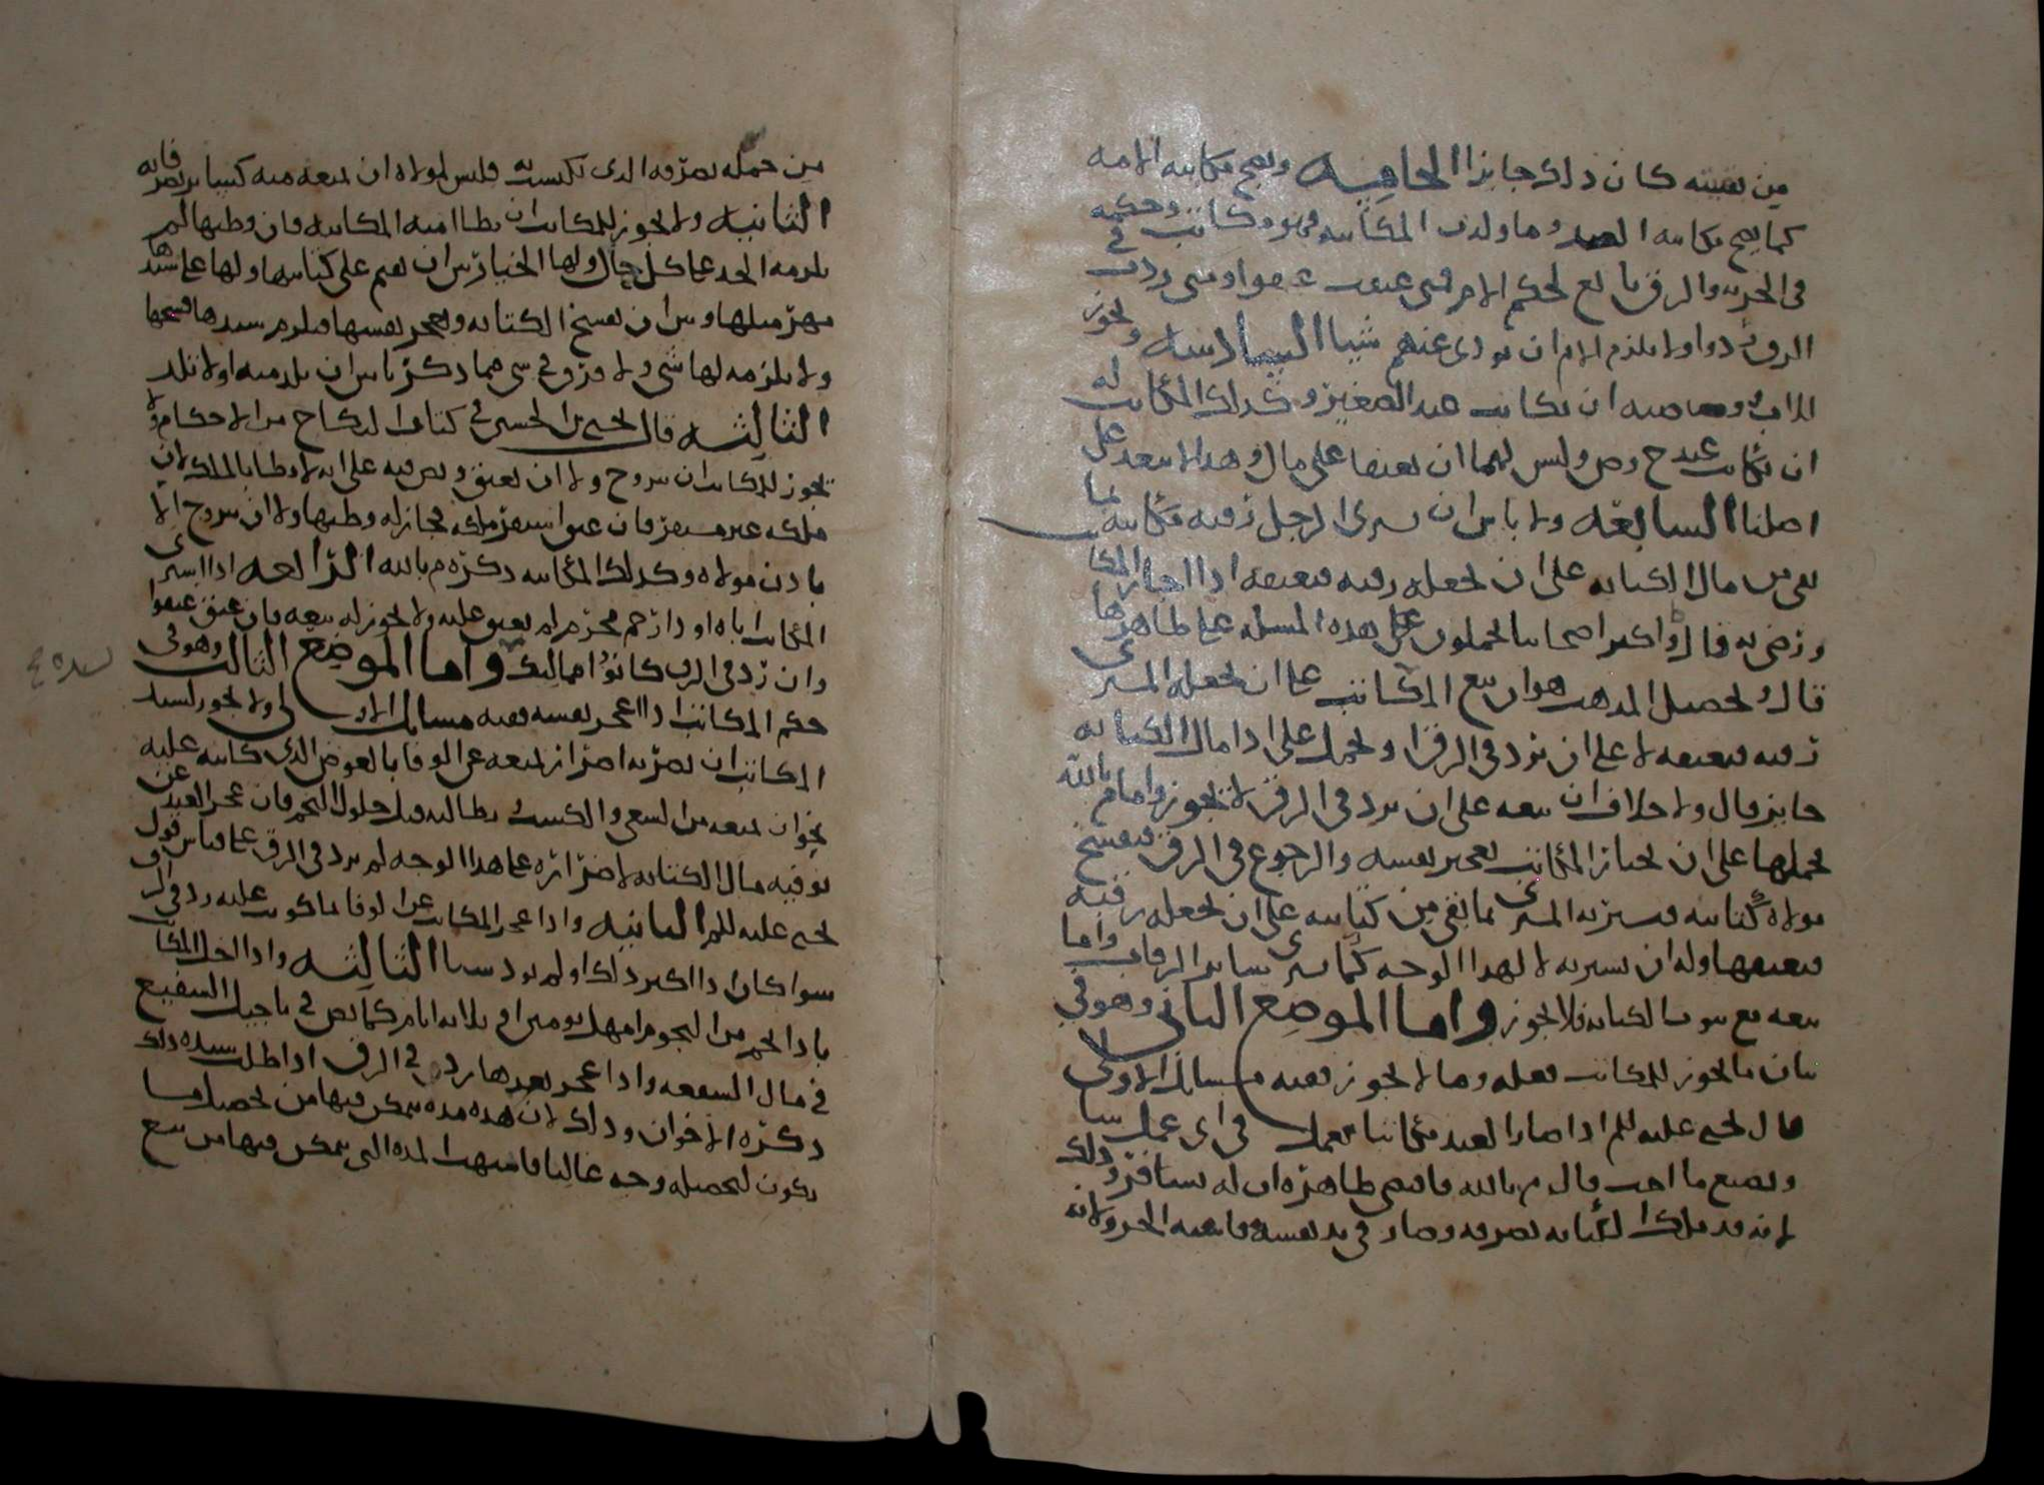 من نفسه كان ذلك جايزا الخامسه ويصح مكاتبه الامه
كما يصح مكاتبه العبد وما ولدت المكاتبه فهو مكاتب وحكمه
في الحريه والرق تابع لحكم الام فمتى عتقت عتقوا ومتى ردت في
الرق ردوا ولا يلزم الام ان تودي عنهم شيا السادسه ويجوز
للاب ووصيه ان يكاتب عبد الصغير وكذلك المكاتب له
ان يكاتب عبده وليس لهما ان يعتقا على مال وهذا لا يبعد على
اصلنا السابعه ولا باس ان يشتري الرجل رقبه مكاتبه بما
بقي من مال الكتابه على ان يجعله رقبه فيعتقه اذا اختار المكاتب
ورضي به قال واكثر اصحابنا يحملون هذه المسله على ظاهرها
قال وتحصيل المذهب هو ان بيع المكاتب على ان يجعله المشتري
رقبه فيعتقه لا على ان يرد في الرق ويحمل على ادا مال الكتابه
جايز قال ولا خلاف ان بيعه على ان يرد في الرق لا يجوز واما م بالله
يحملها على ان يختار المكاتب تعجيز نفسه والرجوع في الرق فيفسخ
مولاه كتابته فيشتريه المشتري بما بقي من كتابته على ان يجعله رقبه
فيعتقها وله ان يشتريه لا لهذا الوجه كما يشتري سائر الرقاب واما
بيعه مع ثبوت الكتابه فلا يجوز واما الموضع الثاني وهو في
بيان ما يجوز للمكاتب فعله وما لا يجوز ففيه مسايل الاولى
قال يحيى عليه السلم اذا صار العبد مكاتبا عمل في اي عمل شا
ويصنع ما احب قال م بالله فاقتضى ظاهره ان له يسافر وذلك
لانه قد ملك بالكتابه تصرفه وصار في يد نفسه فاشبه الحر ولانه
من جمله تصرفه الذي يكتسب به فليس لمولاه ان يمنعه منه كسائر تصرفاته
الثانيه ولا يجوز للمكاتب ان يطا امته المكاتبه فان وطيها لم
يلزمه الحد على كل حال ولها الخيار بين ان تقيم على كتابتها ولها على سيدها
مهر مثلها وبين ان تفسخ الكتابه وتعجز نفسها فيلزم سيدها فسخها
ولا يلزمه لها شي ولا فرق في شي مما ذكرنا بين ان تلد منه او لا تلد
الثالثه قال يحيى بن الحسين في كتاب النكاح من الاحكام ولا
يجوز للمكاتب ان يتزوج ولا ان يعتق ونص فيه على انه لا يطا بالملك لان
ملكه غير مستقر فان عتق استقر ملكه فجاز له وطيها ولا ان يتزوج الا
باذن مولاه وكذلك المكاتبه ذكره م بالله الرابعه اذا اشترى
المكاتب اباه او ذا رحم محرم لم يعتق عليه ولا يجوز له بيعه فان عتق عتقوا
وان رد في الرق كانوا مماليك واما الموضع الثالث وهو في
حكم المكاتب اذا عجز نفسه ففيه مسايل الاولى ولا يجوز لسيد
المكاتب ان يضر به اضرارا يمنعه عن الوفا بالعوض الذي كاتبه عليه
نحو ان يمنعه من السعي والكسب ويطالبه قبل حلول النجم فان عجز العبد عن
توفيه مال الكتابه لاضراره على هذا الوجه لم يرد في الرق على قياس قول
يحيى عليه السلم الثانيه واذا عجز المكاتب عن الوفا بما كوتب عليه رد في الرق
سوا كان ادا اكثر ذلك او لم يود شيا الثالثه واذا اخل المكاتب
بادا نجم من النجوم امهل يومين او ثلاثه ايام كما نص في تاجيل الشفيع
في مال الشفعه واذا عجز بعدها رد في الرق اذا طلب سيده ذلك
ذكره الاخوان وذلك لان هذه مده يتمكن فيها من تحصيل ما
يكون لتحصيله وجه غالبا فاشبهت المده التي يتمكن فيها من بيع